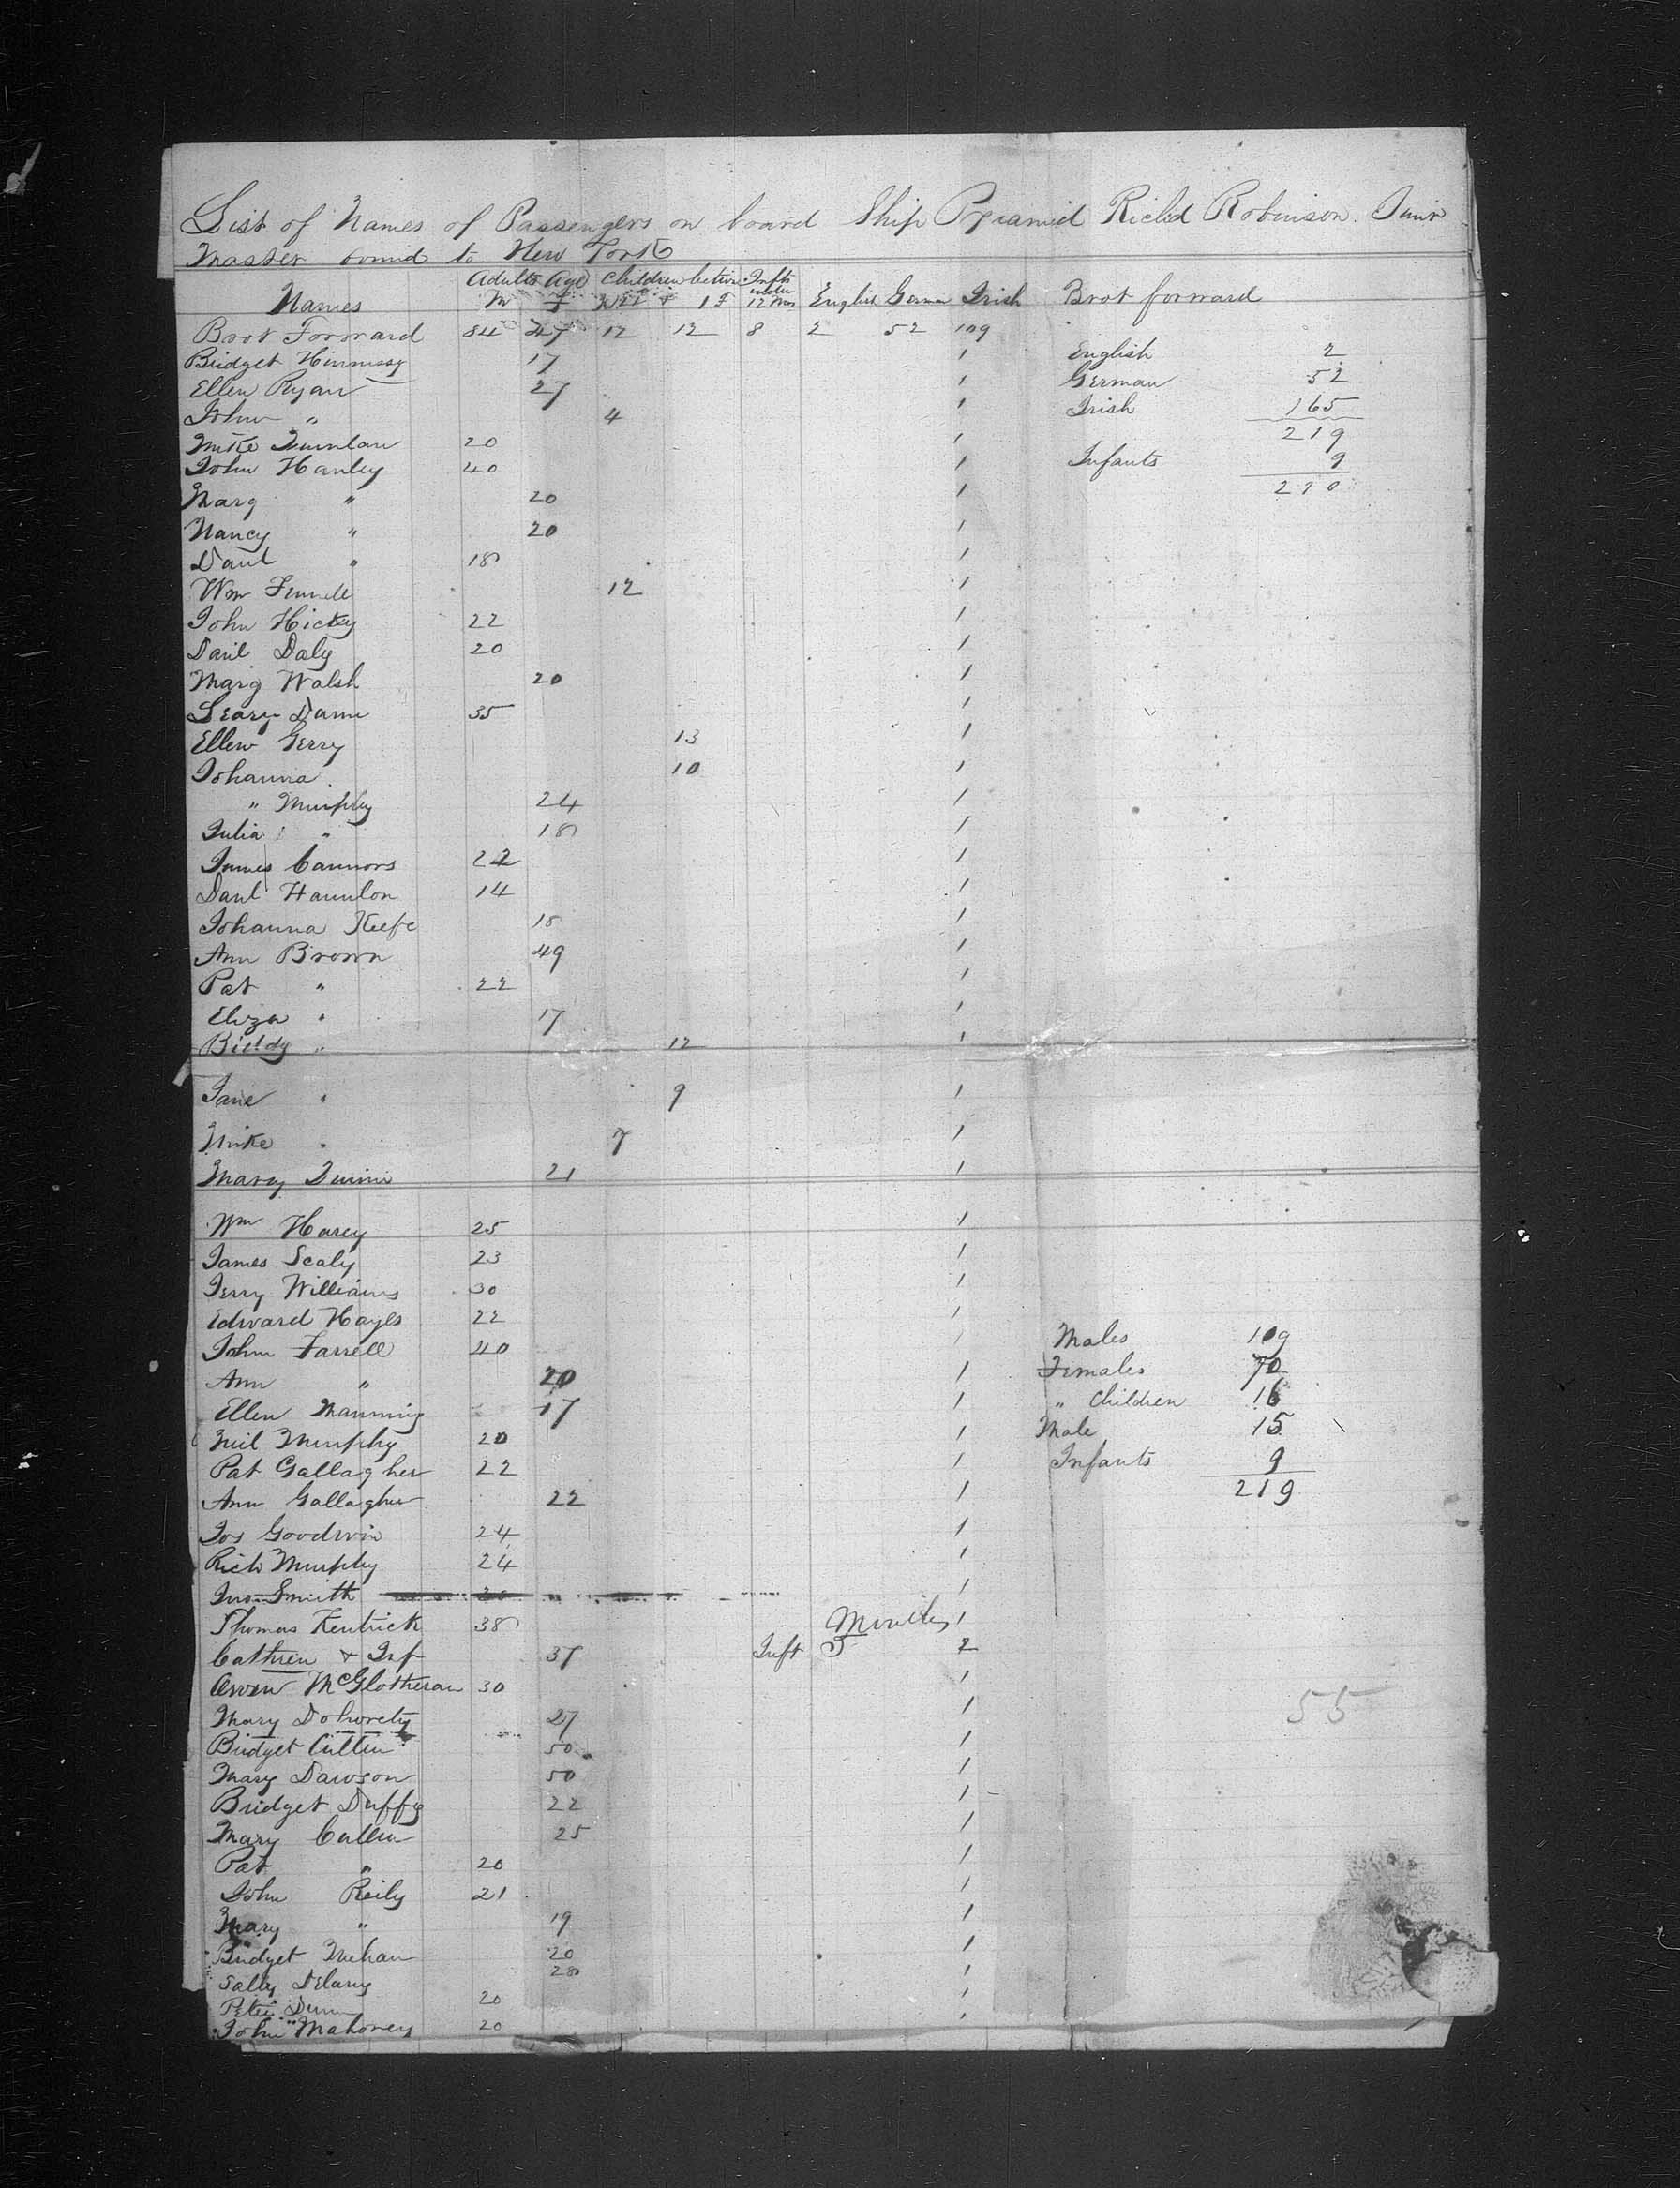 List of Names of Passengers on board Ship Pyramid Richd Robinson Junr
Master bound to New York
Names Adults Age Children Infts under 12 Mos English German Irish Brot forward
M F F
Brot Forward 84 47 12 12 8 2 52 109
Bridget Hinnessy 17 1
Ellen Ryan 27 1
John " 4 1
Mike Quinlan 20 1
John Hanley 40 1
Marg " 20 1
Nancy " 20 1
Danl " 18 1
Wm Fennell 12 1
John Hicky 22 1
Danl Daly 20 1
Marg Walsh 20 1
Leary 35 1
Ellen Gerry 13 1
Johanna 10 1
" Murphy 24 1
Julia " 18 1
James Connors 22 1
Danl Hannlon 14 1
Johanna Keefe 18 1
Ann Brown 49 1
Pat " 22 1
Eliza " 17 1
Biddy " 12 1
Jane " 9 1
Mike " 7 1
Mary Quinn 21 1
Wm Harey 25 1
James Scaly 23 1
Jerry Williams 30 1
Edward Hayes 22 1
John Farrell 40 1
Ann " 20 1
Ellen Manning 17 1
Neil Murphy 20 1
Pat Gallagher 22 1
Ann Gallagher 22 1
Jos Goodwin 24 1
Rich Murphy 24 1
Jno Smith 20 1
Thomas Kentrick 38 Months 1
Cathren & Inf 37 Inft 5 2
Owen McGlotheran 30 1
Mary Dohorety 27 1
Bridget Cullen 50 1
Mary Dawson 50 1
Bridget Duffy 22 1
Mary Cullen 25 1
Pat " 20 1
John Reily 21 1
Mary " 19 1
Bridget Mehan 20 1
Sally Delany 28 1
Peter Dunn 20 1
John Mahoney 20 1
English 2
German 52
Irish 165
219
Infants 9
210
Males 109
Females 70
" Children 16
Male 15
Infants 9
219
55